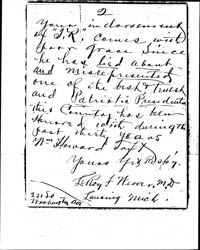 2
Your indorsement
of "T.R." comes with
poor grace since
he has lied about
and misrepresented
one of the best & truest
and Patriotic Presidents
this Country has been
Honored with during the
past thirty years
Wm Howard Taft
Yours
LeRoy F Weaver, M.D
Lansing Mich.
Washington Ave